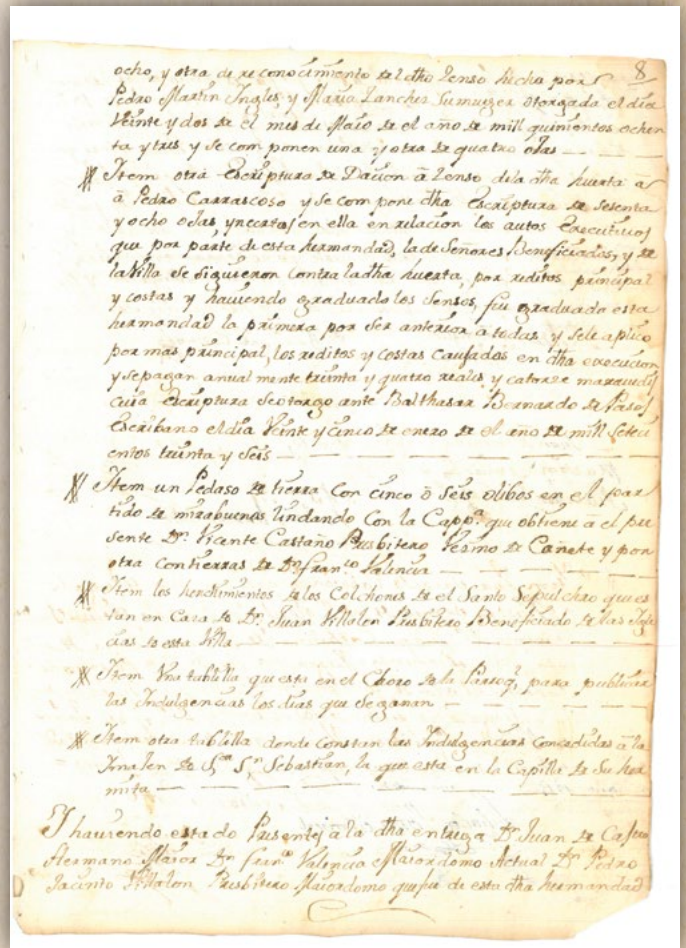 8
ocho, y otra de reconocimiento del dho Zenso hecha por
Pedro Martin Ingles, y Maria Sanches su muger otorgada el dia
Veinte y dos de el mes de Maio de el año de mill quinientos ochen
ta y tres y se componen una y otra de quatro ojas
Item otra escriptura de Dacion â Zenso dela dha huerta â
â Pedro Carrascoso y se compone dha escriptura de sesenta
y ocho ojas en ella en relacion los autos executivos
que por parte de esta hermandad, la de Señores Beneficiados, y de
la Villa se siguieron contra la dha huerta, por reditos, principal
y costas y haviendo graduado los Sensos, fue graduado esta
hermandad la primera por ser anterior a todas, y sele aplico
por mas principal, los reditos y costas causados en dha execucion
y se pagan anual mente treinta y quatro reales, y catorse maravedis
cuia escriptura se otorgo ante Balthasar Bernardo de
Escribano el dia Veinte y cinco de enero de el año de mill Seteci
entos treinta y seis
Item un Pedaso de tierra con cinco ô seis olibos en el par
tido de mirabuenos lindando con la Capp.ª que obtiene a el pre
sente Dn. Vicente Castaño Presbitero Vesino de Cañete y por
otra con tierras de Dn. Fran.co Valencia
Item los henchimientos de los Colchones de el Santo Sepulchro que es
tan en Casa de Dn. Juan Villalon Presbitero Beneficiado de las Igle
cias de esta Villa
Item Una tablilla que esta en el Choro de la Parroq.ª para publicar
las Indulgencias los dias que se ganan
Item otra tablilla donde constan las Indulgencias concedidas â la
Imalen de S.or S.n Sebastian, la que esta en la Capilla de su her
mita
Y haviendo estado Presentes a la dha entrega Dn. Juan de Castro
Hermano Maior Dn Fran.co Valencia Maiordomo Actual Dn Pedro
Jacinto Villalon Presbitero Maiordomo que fue de esta dha hermandad